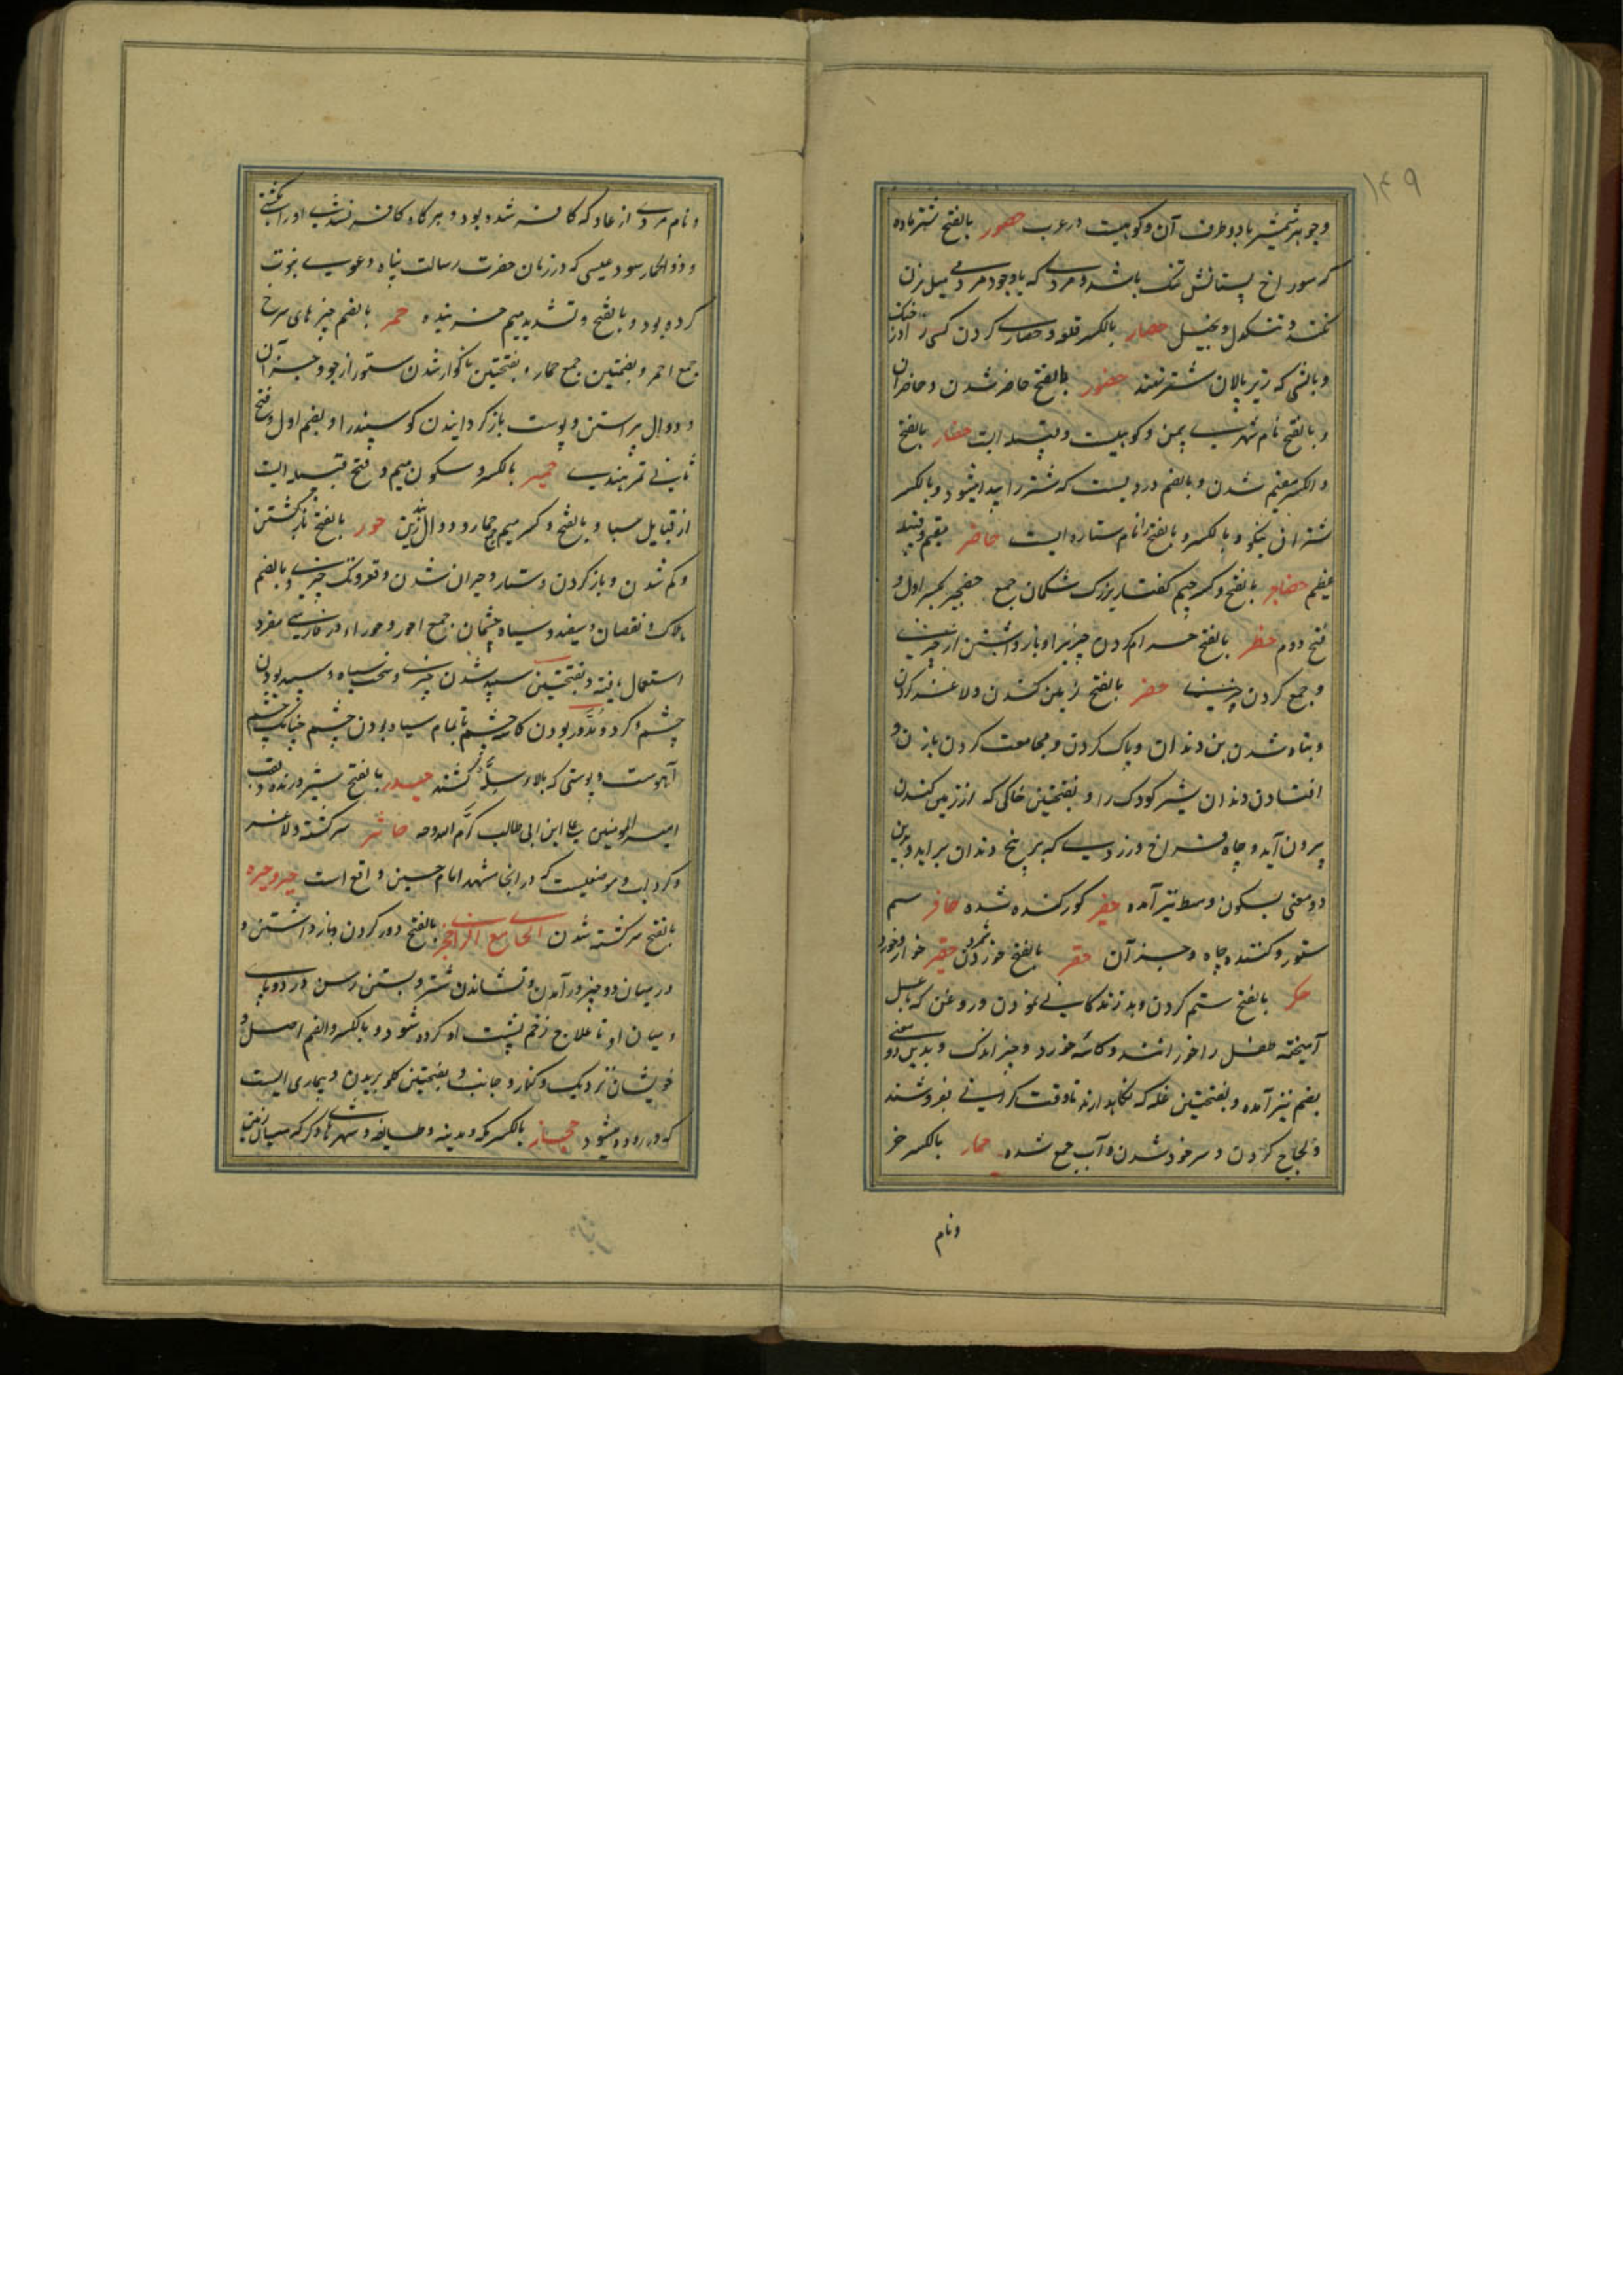 ۱۴۹
وجوهر شمشیر یا دو طرف آن و کوهیست در عرب حصور بالفتح شتر ماده
که سوراخ پستانش تنک باشد و مردی که باوجود مردمی میل بزن
نکند و تنکدل و بخیل حصار بالکسر قلعه و حصار کردن کسی را در جنک
و بالشی که زیر پالان شتر نهند حضور بالفتح حاضر شدن و حاضران
و بالفتح نام شهریست بیمن و کوهیست و قبیله ایست حضار بالفتح
و الکسر مقیم شدن و بالضم دردیست که شتر را پیدا میشود و بالکسر
شتران نیکو و بالکسر و بالفتح را نام ستاره ایست حاضر مقیم و قبیله
عظیم حضاجر بالفتح و کسر جیم کفتار بزرک شکمان جمع حضجر بکسر اول و
فتح دوم حظر بالفتح حرام کردن چیزیرا و باز داشتن از چیزی
و جمع کردن چیزی حفر بالفتح زمین کندن و لاغر کردن
و تباه شدن بن دندان و پاک کردن و مجامعت کردن با زن و
افتادن دندان شیر کودک را و بفتحتین خاکی که از زمین کندن
بیرون آید و چاه فراخ و زردیی که بر بیخ دندان براید و بدین
دو معنی بسکون وسط نیز آمده حفیر کور کنده شده حافر سم
ستور و کننده چاه و جز آن حقر بالفتح خورد کردن حقیر خوار و خورد
حکر بالفتح ستم کردن و بد زندکانی نمودن و روغن که با عسل
آمیخته طفل را خورانند و کاسه خورد و چیز اندک و بدین دو معنی
بضم نیز آمده و بفتحتین غله که نکاهدارند تا وقت کرانی بفروشند
و لجاج کردن و سرخود شدن و آب جمع شده حمار بالکسر خر
و نام
و نام مردی از عاد که کافر شده بود و هر کاه کافر نشدی او را بکشتی
و ذو الحمار سود عیسی که در زمان حضرت رسالت پناه دعوی نبوت
کرده بود و بالفتح و تشدید میم خر بنده حمر بالضم چیز های سرخ
جمع احمر و بضمتین جمع حمار و بفتحتین ناکوار شدن ستور از جو و جز آن
و دوال پیراستن و پوست باز کردانیدن کوسپند را و بضم اول و فتح
ثانی تمر هندی حمیر بالکسر و سکون میم و فتح قبیله ایست
از قبایل سبا و بالفتح و کسر میم جمع حمار و دوال زین حور بالفتح باز کشتن
و کم شدن و باز کردن دستار و حیران شدن و قعر و تک چیزی و بالضم
هلاک و نقصان و سفید و سیاه چشمان جمع احور و حوراء و در فارسی مفرد
استعمال یافته و بفتحتین سپید شدن چیزی و سخت سیاه و سپید بودن
چشم و کرد و مدور بودن کاسه چشم تا تمام سیاه بودن چشم چنانکه چشم
آهوست و پوستی که بالاء سله کشند حیدر بالفتح شیر درنده و لقب
امیر المومنین علی ابن ابی طالب کرم الله وجهه حائر سرکشته و لاغر
و کرداب و موضعیست که در انجا مشهد امام حسین واقع است حیر و حیره
بالفتح سرکشته شدن الحا مع الزا حجز بالفتح دور کردن و باز داشتن و
در میان دو چیز در آمدن و نشاندن شتر و بستن رسن در دو پای
و میان او تا علاج زخم پشت او کرده شود و بالکسر و الضم اصل و
خویشان نزدیک و کنار و جانب و بفتحتین کلو بریدن و بیماری ایست
که در روده میشود حجاز بالکسر مکه و مدینه و طایف و شهرهاء دیکر که میان